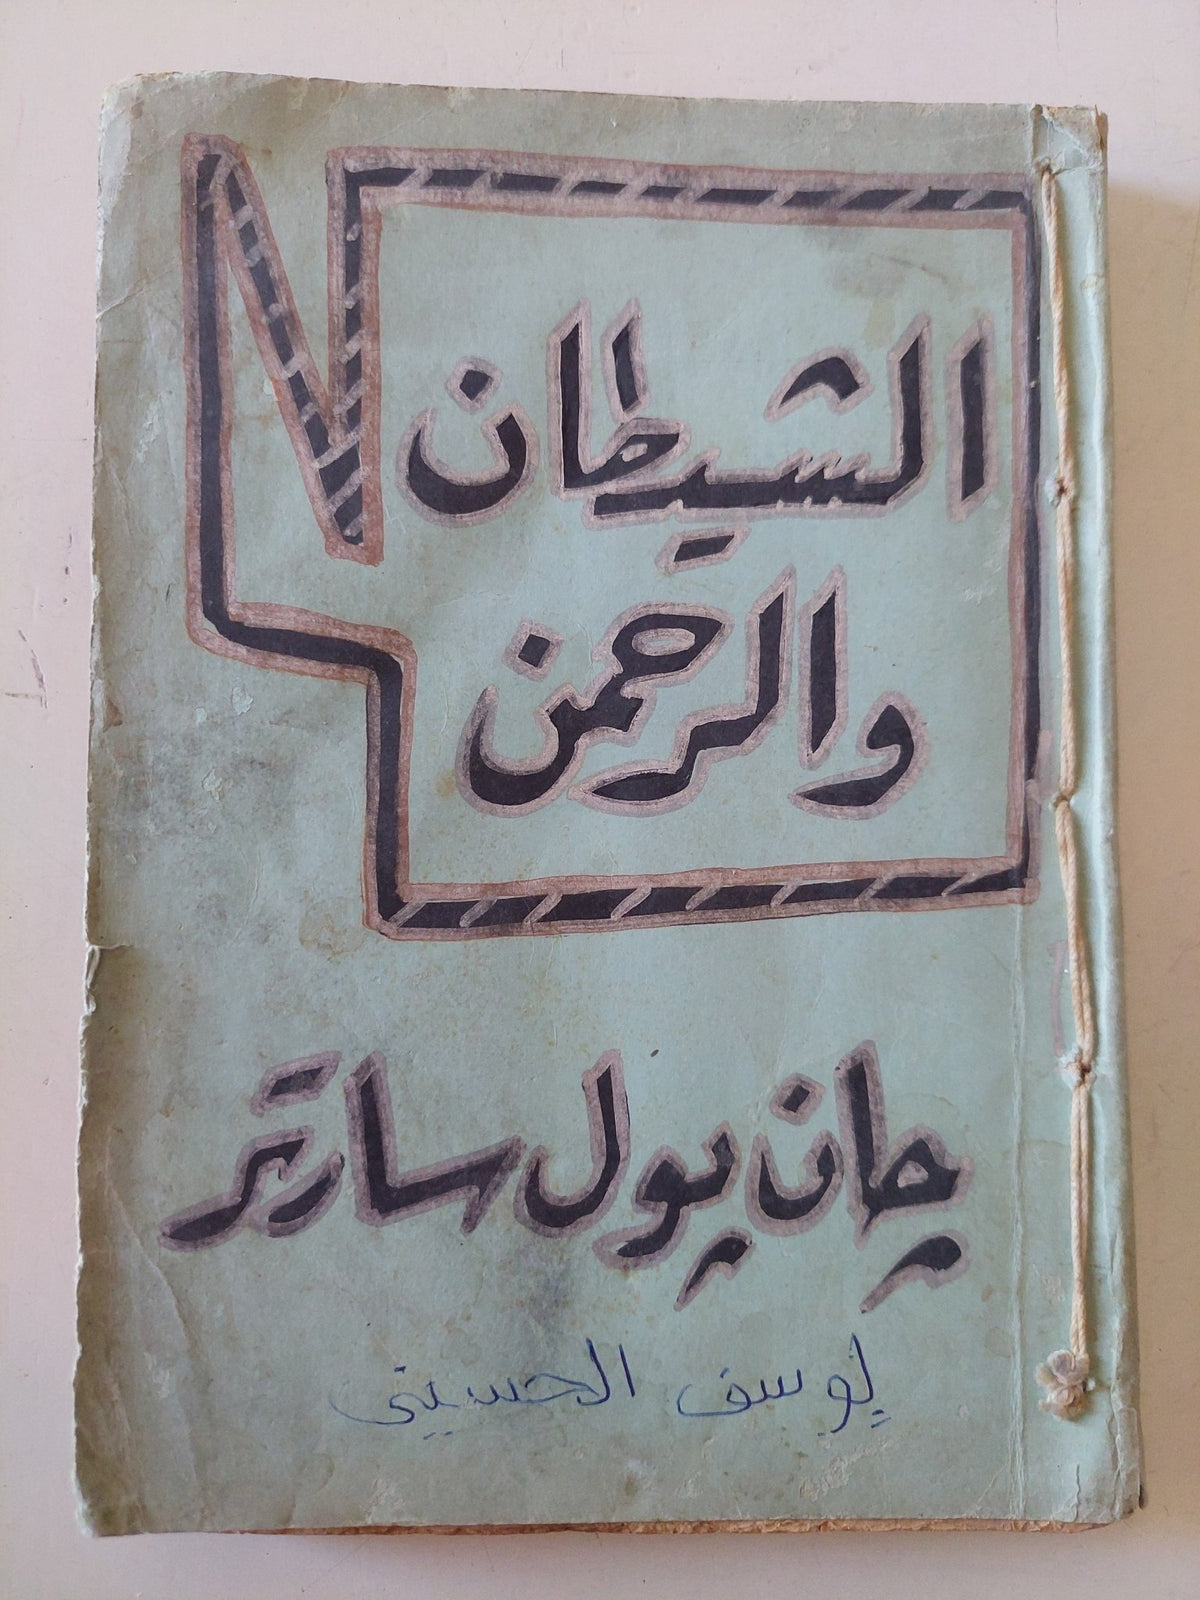 الشيطان
والرحمن
چان پول سارتر
يوسف الحسيني